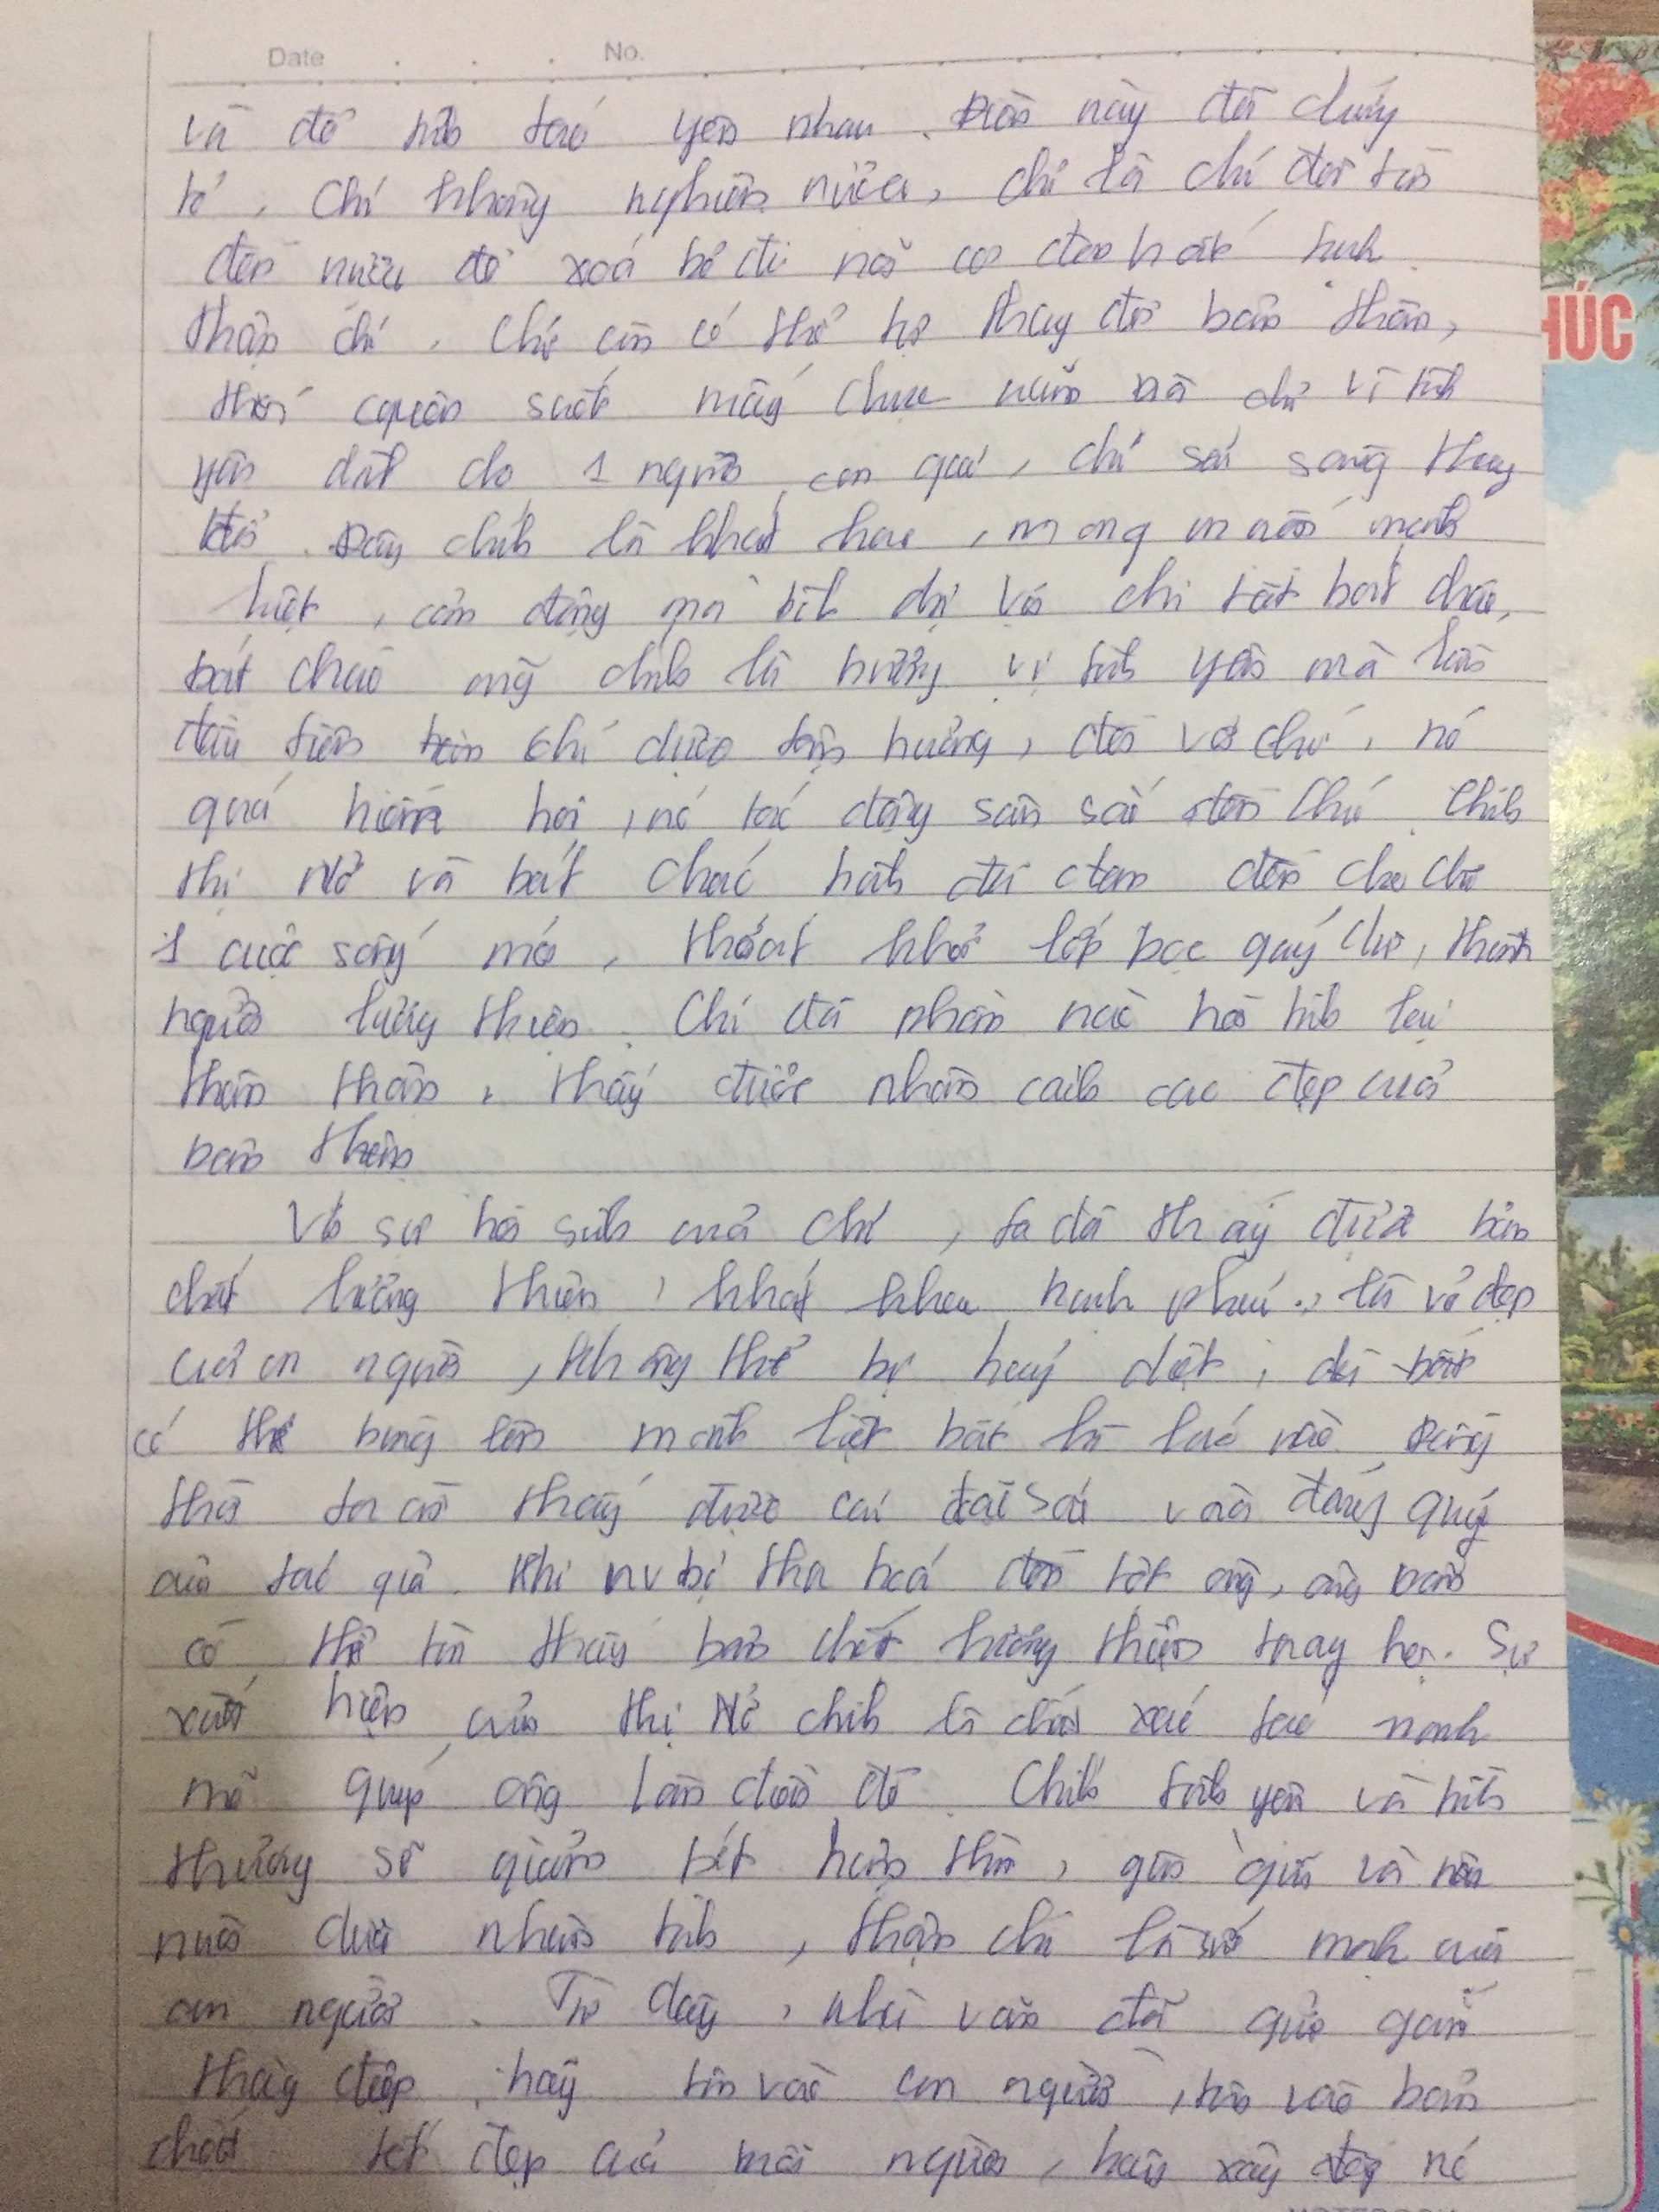 Date No.
và để hình thức yêu nhau. Điều này đã chứng
tỏ, Chí không nghiện nữa, chỉ là Chí đời tàn
đến nước để xoá bỏ đi nỗi cô đơn hắt hiu
thận chí. Chí còn có thể tự thay đổi bản thân,
thói quen suốt mấy chục năm nà chỉ vì tình
yêu dành cho 1 người con gái, chí sẵn sàng thay
đổi. Đây chính là khát khao, mong muốn mạnh
liệt, cảm động mà bình dị với chỉ 1 bát cháo,
bát cháo ấy chính là hương vị tình yêu mà lần
đầu tiên Chí được tận hưởng, đối với Chí, nó
quá hiếm hoi, nó tác động sâu sắc đến Chí. Chính
thị Nở và bát cháo hành đã đem đến cho Chí
1 cuộc sống mới, thoát khỏi lốp bọc quỷ dữ, thành
người lương thiện. Chí đã phần nào hồi tỉnh lại
thân thân, thấy được nhân cách cao đẹp của
bản thân
Với sự hồi sinh của Chí, ta đã thấy được bản
chất lương thiện, khát khao hạnh phúc, là vẻ đẹp
của con người, không thể bị huỷ diệt,
có thể bùng lên mãnh liệt bất kì lúc nào. Đồng
thời ta còn thấy được cái đặc sắc và đáng quý
của tác giả. Khi nv bị tha hoá đến tột cùng, ông vẫn
có thể tìm thấy bản chất lương thiện trong họ. Sự
xuất hiện của thị Nở chính là chất xúc tác mạnh
mẽ giúp ông làm được đó. Chính tình yêu và tình
thương sẽ giảm bớt hận thù, gần gũi và nên
nuôi dưỡng nhân tính, thậm chí là số mệnh của
con người. Từ đây, nhà văn đã gửi gắm
thông điệp: hãy tin vào con người, tin vào bản
chất tốt đẹp của mỗi người, hãy xây dựng nó
HÚC